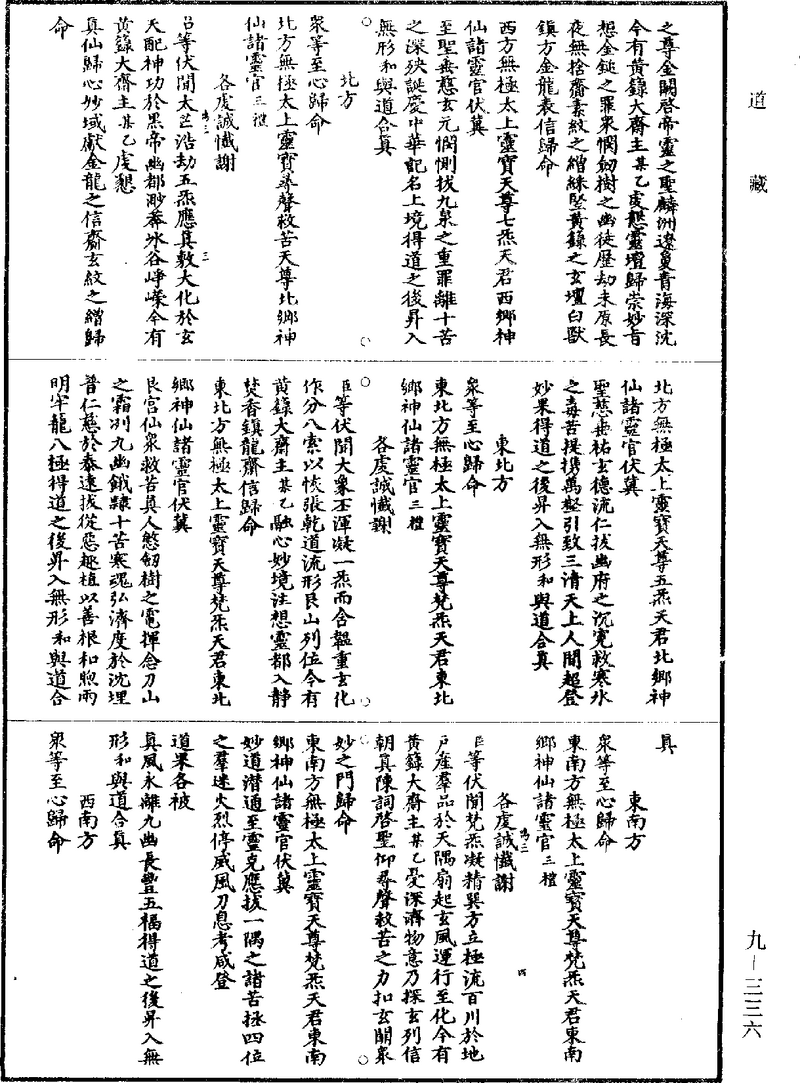 道藏
九—三三六
之尊金闕啓帝靈之聖麟洲遼夐青海深沈
今有黃籙大齋主某乙虔懇靈壇歸崇妙旨
想金鎚之罪衆憫劒樹之幽徒歷劫未原長
夜無捨齎素紋之繒綵堅黃籙之玄壇白獸
鎮方金龍表信歸命
西方無極太上靈寶天尊七炁天君西鄉神
仙諸靈官伏冀
至聖垂慈玄元憫惻拔九泉之重罪離十苦
之深殃誕慶中華記名上境得道之後昇入
無形和與道合真
北方
衆等至心歸命
北方無極太上靈寶尋聲救苦天尊北鄉神
仙諸靈官三禮
各虔誠懺謝
臣等伏聞太芒浩劫五炁應真敷大化於玄
天配神功於黑帝幽都渺莽氷谷崢嶸今有
黃籙大齋主某乙虔懇
真仙歸心妙域獻金龍之信齎玄紋之繒歸
命
北方無極太上靈寶天尊五炁天君北鄉神
仙諸靈官伏冀
聖慈垂祐玄德流仁拔幽府之沉寃救寒氷
之毒苦提携萬壑引致三清天上人間超登
妙果得道之後昇入無形和與道合真
東北方
衆等至心歸命
東北方無極太上靈寶天尊梵炁天君東北
鄉神仙諸靈官三禮
各虔誠懺謝
臣等伏聞大象丕渾凝一炁而含韞重玄化
作分八索以恢張乾道流形艮山列位今有
黃籙大齋主某乙融心妙境注想靈都入静
焚香鎮龍齎信歸命
東北方無極太上靈寶天尊梵炁天君東北
鄉神仙諸靈官伏冀
艮宮仙衆救苦真人愍劒樹之電揮念刀山
之霜冽九幽餓饉十苦寒魂弘濟度於沈埋
普仁慈於泰遠拔從惡趣植以善根和煦雨
明牢籠八極得道之後昇入無形和與道合
真
東南方
衆等至心歸命
東南方無極太上靈寶天尊梵炁天君東南
鄉神仙諸靈官三禮
各虔誠懺謝
臣等伏聞梵炁凝精巽方立極流百川於地
戶産羣品於天隅扇起玄風運行至化今有
黃籙大齋主某乙憂深濟物意乃探玄列信
朝真陳詞啓聖仰尋聲救苦之力扣玄關衆
妙之門歸命
東南方無極太上靈寶天尊梵炁天君東南
鄉神仙諸靈官伏冀
妙道潛通至靈克應拔一隅之諸苦拯四位
之羣迷火烈停威風刀息考咸登
道果各被
真風永離九幽長豐五福得道之後昇入無
形和與道合真
西南方
衆等至心歸命